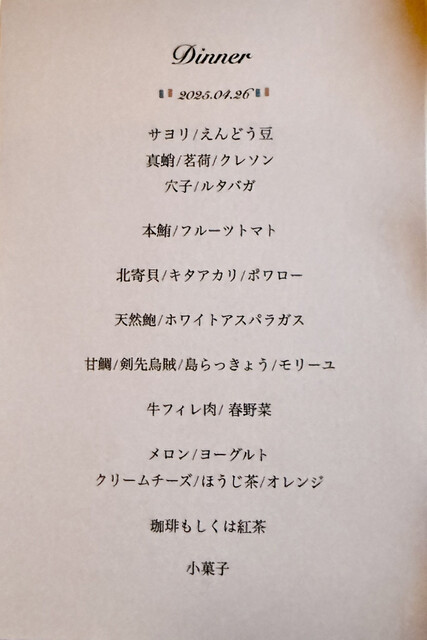 Dinner
🇫🇷 2025.04.26 🇫🇷
サヨリ/えんどう豆
真蛸/茗荷/クレソン
穴子/ルタバガ
本鮪/フルーツトマト
北寄貝/キタアカリ/ポワロー
天然鮑/ホワイトアスパラガス
甘鯛/剣先烏賊/島らっきょう/モリーユ
牛フィレ肉/ 春野菜
メロン/ヨーグルト
クリームチーズ/ほうじ茶/オレンジ
珈琲もしくは紅茶
小菓子